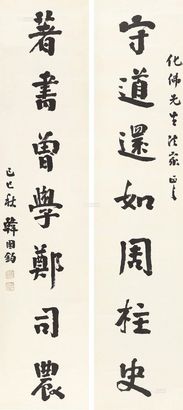 化佛先生法家正之
守道還如周柱史
著書曾學鄭司農
己巳秋 韓國鈞